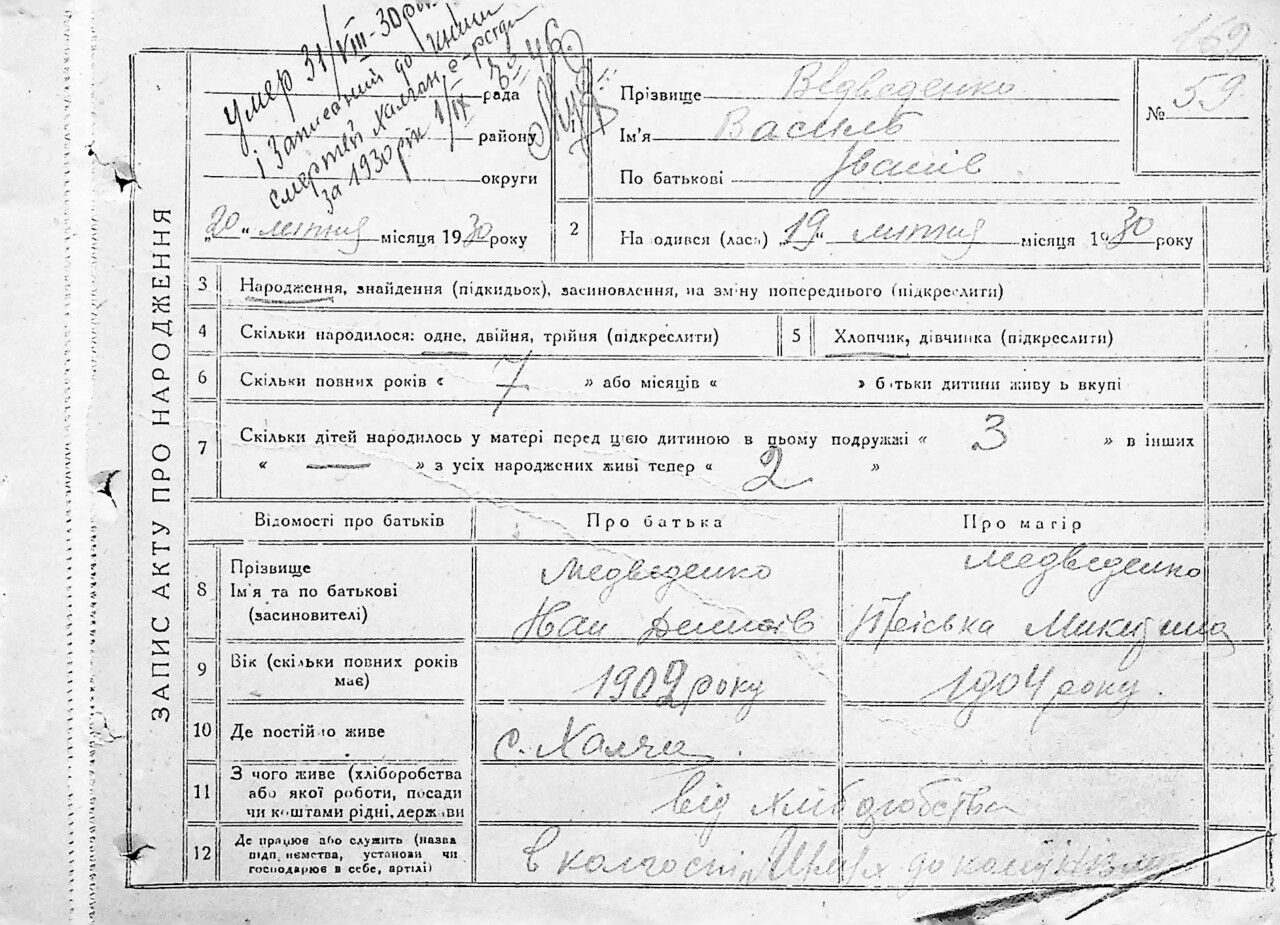 159
умер 31/VIII-30 рок
і записаний до книги
смертей Халчан с-ради
за 1930 рік 1/IX № 46
рада
району
округи
„20“ лютня місяця 1930 року
Прізвище Ведведенко
Ім'я Василь
По батькові Іванів
№ 59
2 На одився (лась) „19“ лютня місяця 1930 року
ЗАПИС АКТУ ПРО НАРОДЖЕННЯ
3 Народження, знайдення (підкидьок), засиновлення, на зміну попереднього (підкреслити)
4 Скільки народилося: одне, двійня, трійня (підкреслити) 5 Хлопчик, дівчинка (підкреслити)
6 Скільки повних років « 7 » або місяців « » б тьки дитини живу ь вкупі
7 Скільки дітей народилось у матері перед цією дитиною в цьому подружжі « 3 » в інших
« — » з усіх народжених живі тепер « 2 »
Відомості про батьків Про батька Про матір
8 Прізвище
Ім'я та по батькові
(засиновителі)
Медведенко
Іван
Медведенко
Микитина
9 Вік (скільки повних років
має)
1902 року 1904 року.
10 Де постій о живе с. Халча.
11 З чого живе (хліборобства
або якої роботи, посади
чи коштами рідні, держ ви
від хліборобства
12 Де працює або служить (назва
підп ємства, установи чи
господарює в себе, артілі)
в колгоспі до комунізму